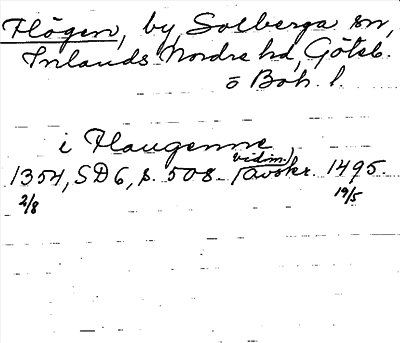 Högen, by, Solberga sn,
Inlands Nordre hd, Göteb.
o Boh. l.
i Haugenne
1354, SD6, s. 508 (vidim. avskr. 1495.
2/8 19/5